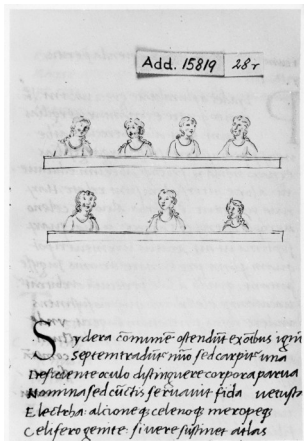 Add. 15819 28r
Sydera cōmunē ostendūt ex oībus ignē
Septem tradūt' nūo sed carpit' una
Deficiente oculo distinguere corpora parua
Nomina sed cūctis seruauit fida uetusta
Electrha: alcioneq; celenoq; meropeq;
Celifero genite: si uere sustinet atlas